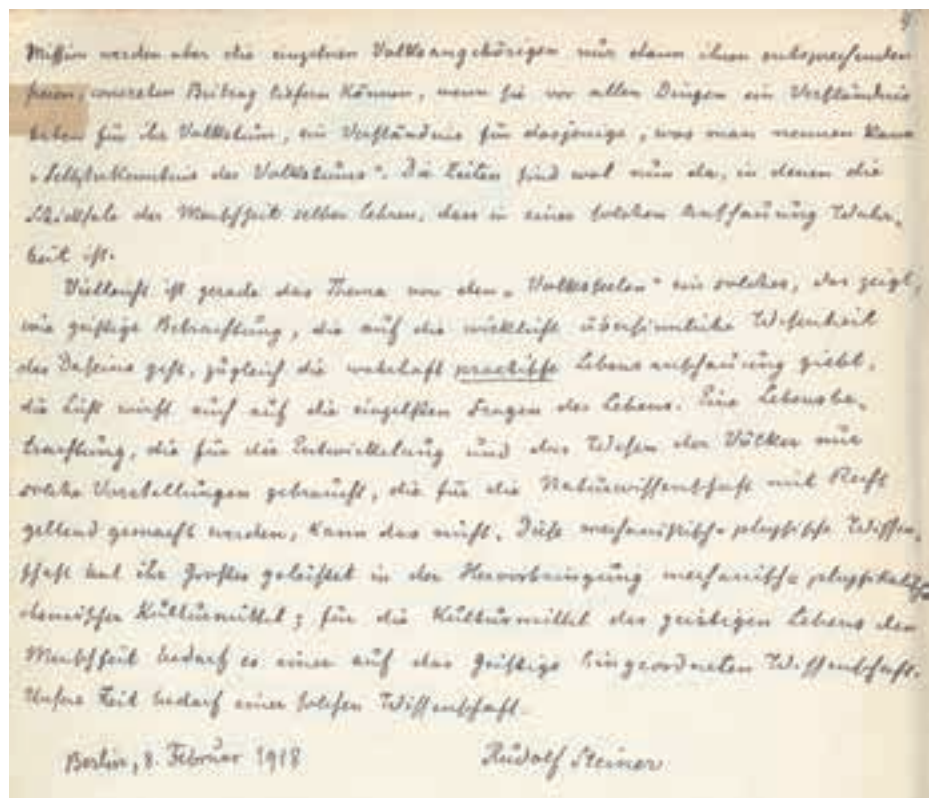 Mission werden aber die einzelnen Volksangehörigen nur dann ihren entsprechenden
freien, concreten Beitrag liefern können, wenn sie vor allen Dingen ein Verständnis
haben für ihr Volkstum, ein Verständnis für dasjenige, was man nennen kann
„Selbsterkenntnis des Volkstums“. Die Zeiten sind wol nun da, in denen die
Schicksale der Menschheit selber lehren, dass in einer solchen Anschauung Wahr-
heit ist.
Vielleicht ist gerade das Thema von den „Volksseelen“ ein solches, das zeigt,
wie geistige Betrachtung, die auf die wirklich übersinnliche Wesenheit
des Daseins geht, zugleich die wahrhaft practische Lebensanschauung giebt,
die Licht wirft auch auf die einzelsten Fragen des Lebens. Eine Lebensbe-
trachtung, die für die Entwickelung und das Wesen der Völker nur
solche Vorstellungen gebraucht, die für die Naturwissenschaft mit Recht
geltend gemacht werden, kann das nicht. Diese mechanistisch-physische Wissen-
schaft hat ihr Großes geleistet in der Hervorbringung mechanisch-physikalisch-
chemischer Kulturmittel; für die Kulturmittel des geistigen Lebens der
Menschheit bedarf es einer auf das Geistige hingeordneten Wissenschaft.
Unsere Zeit bedarf einer solchen Wissenschaft.
Berlin, 8. Februar 1918 Rudolf Steiner